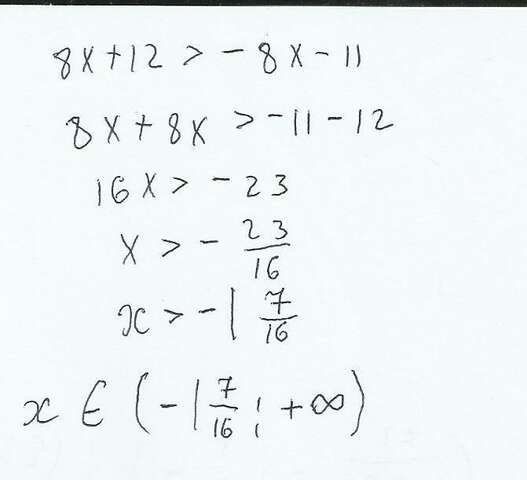 8x+12 > -8x-11
8x+8x > -11-12
16x > -23
x > - 23/16
x > -1 7/16
x ∈ (-1 7/16; +∞)